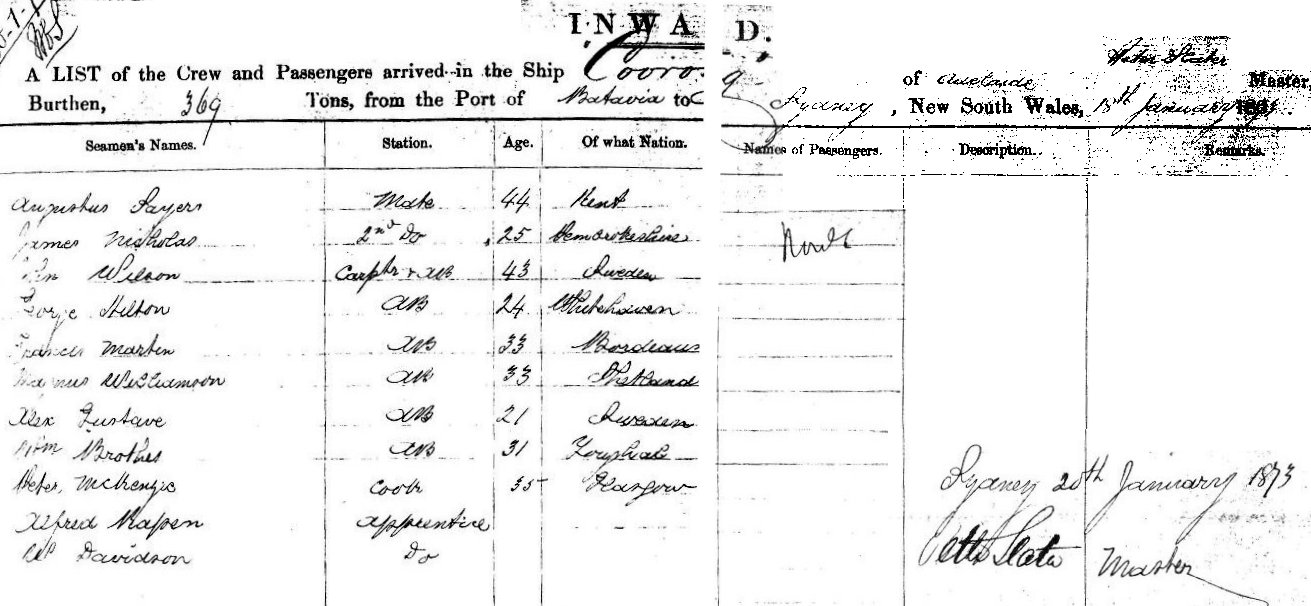 INWA D.
A LIST of the Crew and Passengers arrived in the Ship of Adelaide Peter Slater Master,
Burthen, 369 Tons, from the Port of Batavia to Sydney, New South Wales, 15th January
Seamen's Names. Station. Age. Of what Nation. Names of Passengers. Description. Remarks.
Augustus Sayers Mate 44 Kent
James Nicholas 2nd Do 25 Pembrokeshire
Wilson Carptr & AB 43 Sweden
George Hilton AB 24 Whitehaven
Francis Martin AB 33 Bordeaus
Magnus Williamson AB 33 Shetland
Alex Gustave AB 21 Sweden
Wm AB 31
Peter McKenzie Cook 35 Glasgow
Alfred Apprentice
Davidson Do
None
Sydney 20th January 1873
Peter Slater Master